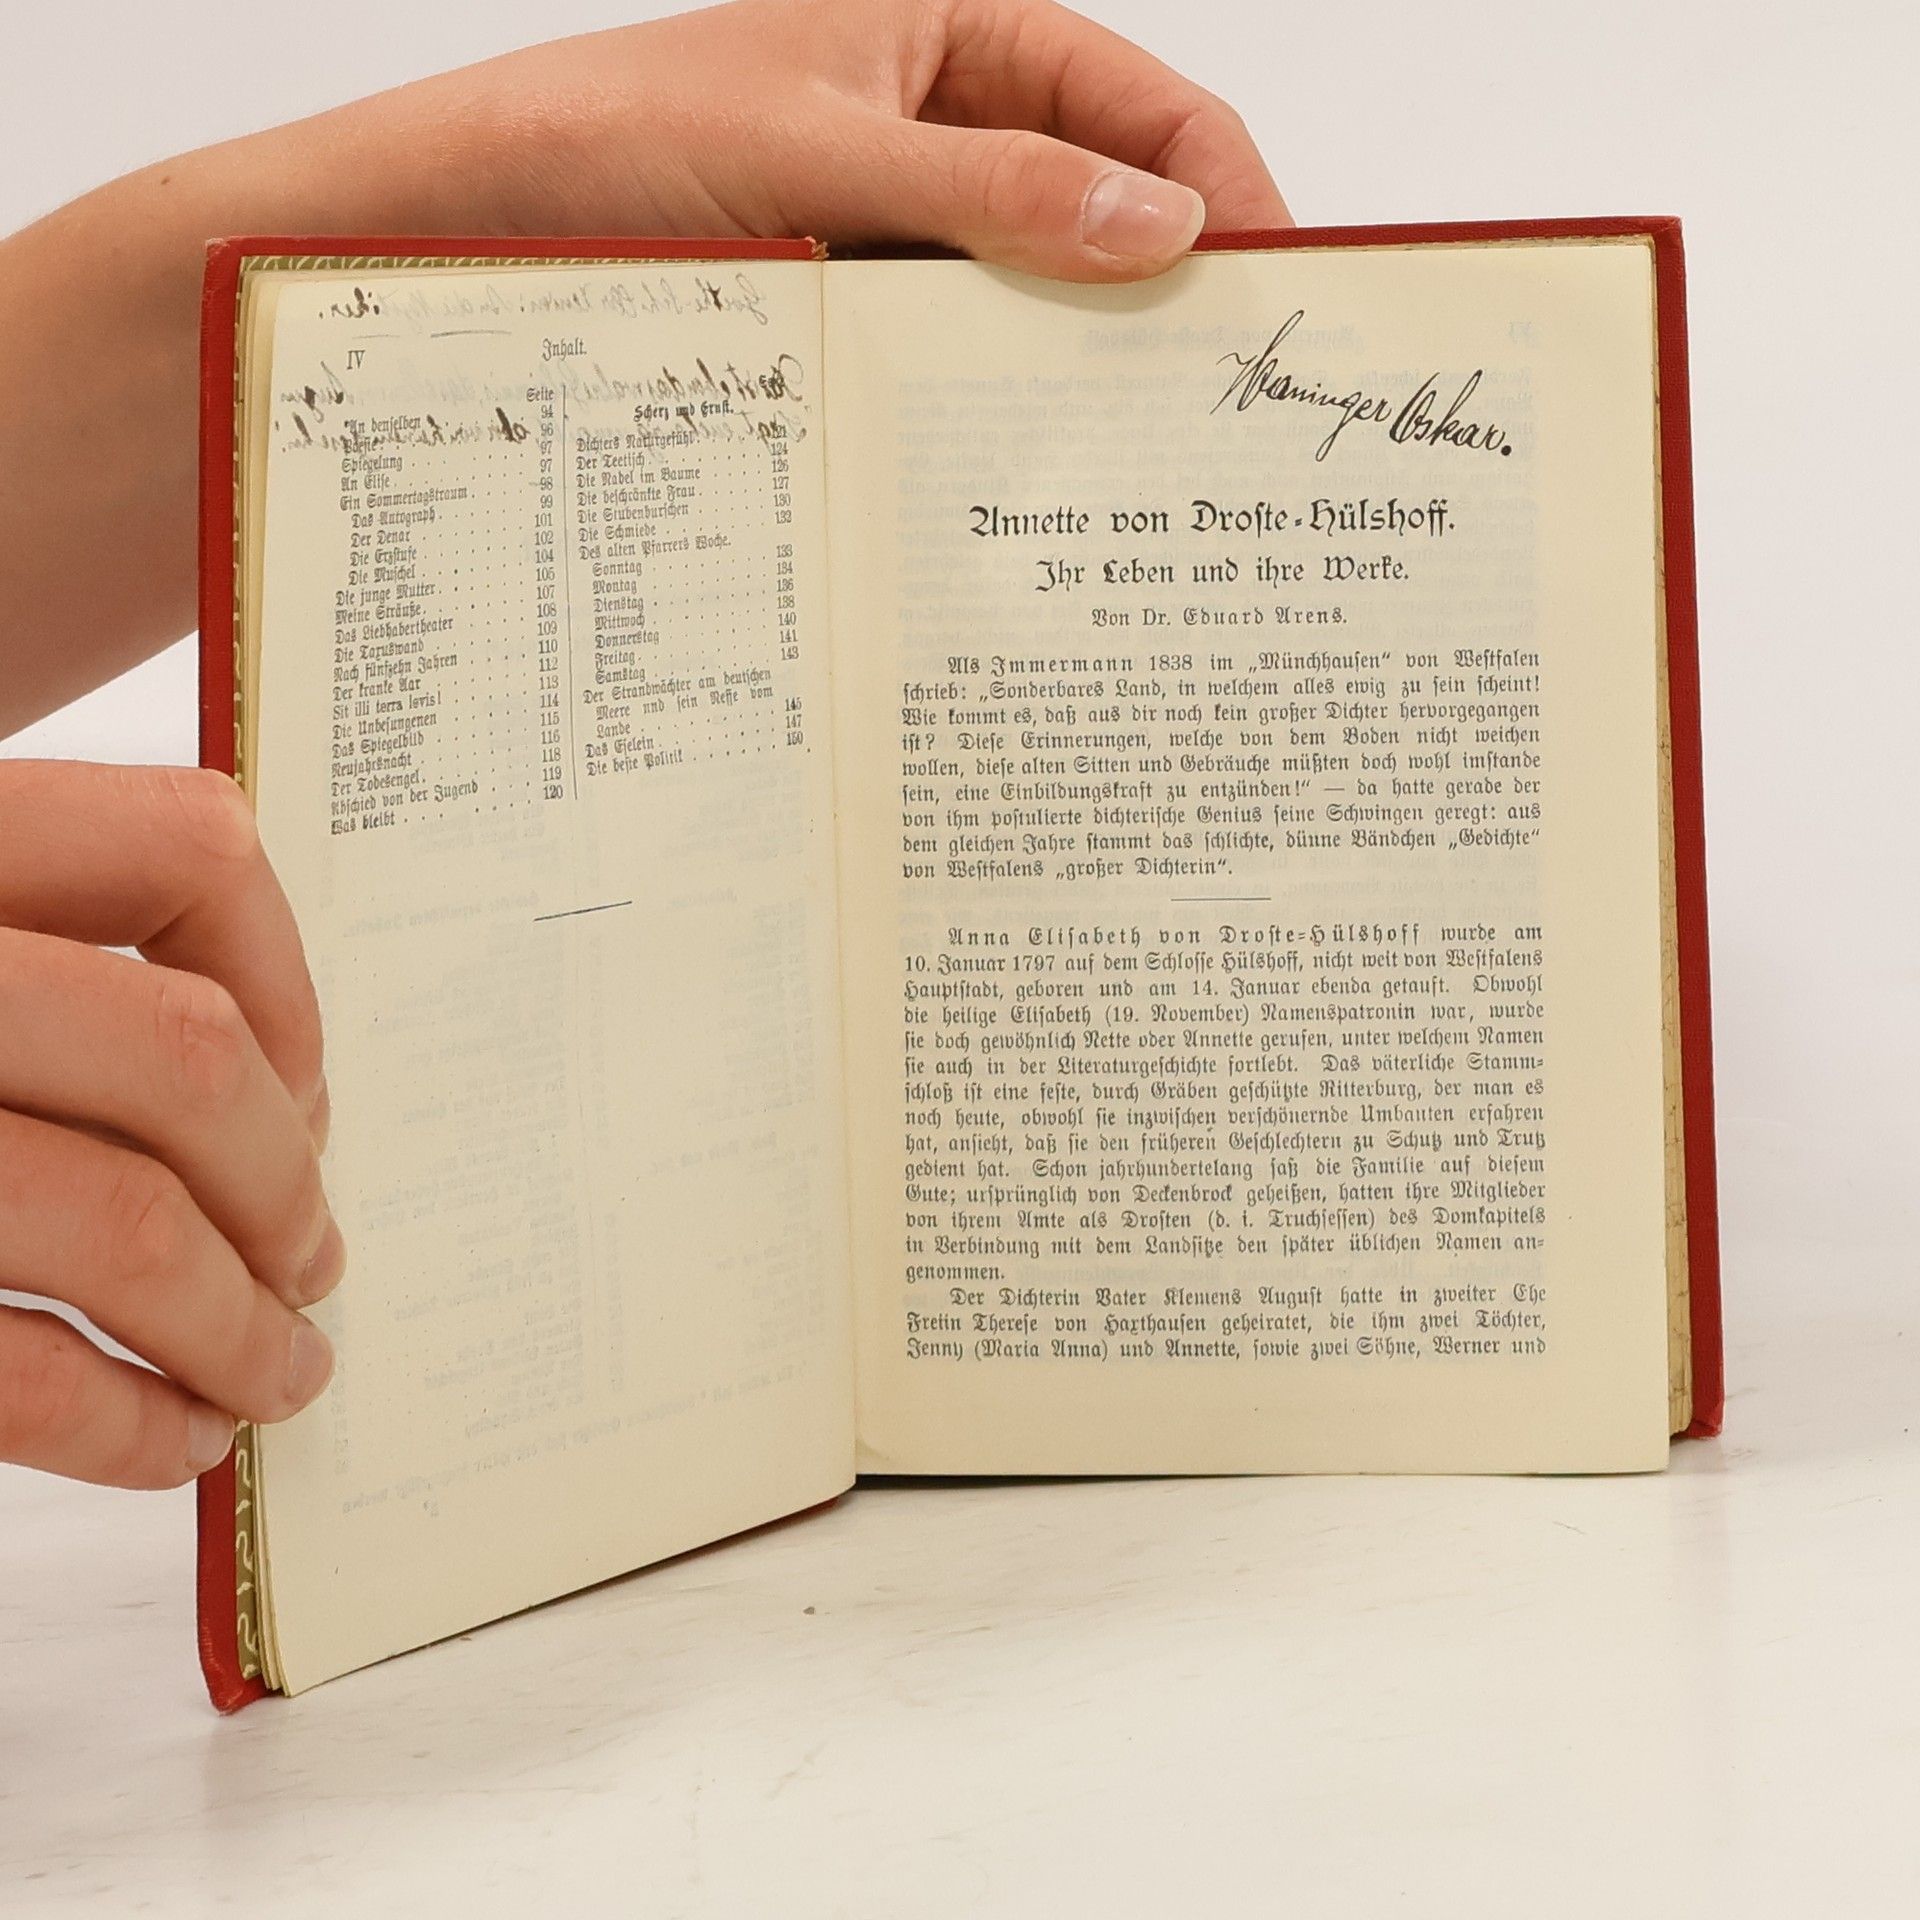 IV
Inhalt.
Seite
An denselben 94
Poesie . . . 96
Spiegelung . . . . 97
An Elise . . . . . 97
Ein Sommertagstraum . . . . 98
Das Autograph . . . . 99
Der Denar . . . . 101
Die Erzstufe . . . . 102
Die Muschel . . . . 104
Die junge Mutter . . . . 105
Meine Sträuße . . . . 107
Das Liebhabertheater . . . . 108
Die Taxuswand . . . . 109
Nach fünfzehn Jahren . . . . 110
Der kranke Aar . . . . 112
Sit illi terra levis! . . . . 113
Die Unbesungenen . . . . 114
Das Spiegelbild . . . . 115
Neujahrsnacht . . . . 116
Der Todesengel . . . . 118
Abschied von der Jugend . . . . 119
Was bleibt . . . . 120
Scherz und Ernst.
Dichters Naturgefühl . . . 121
Der Teetisch . . . . 124
Die Nadel im Baume . . . . 126
Die beschränkte Frau . . . . 127
Die Stubenburschen . . . . 130
Die Schmiede . . . . 132
Des alten Pfarrers Woche.
Sonntag . . . . 133
Montag . . . . 134
Dienstag . . . . 136
Mittwoch . . . . 138
Donnerstag . . . . 140
Freitag . . . . 141
Samstag . . . . 143
Der Strandwächter am deutschen
Meere und sein Neffe vom
Lande . . . . 145
Das Eselein . . . . 147
Die beste Politik . . . . 150
Haninger Oskar.
Annette von Droste-Hülshoff.
Ihr Leben und ihre Werke.
Von Dr. Eduard Arens.
Als Immermann 1838 im „Münchhausen“ von Westfalen
schrieb: „Sonderbares Land, in welchem alles ewig zu sein scheint!
Wie kommt es, daß aus dir noch kein großer Dichter hervorgegangen
ist? Diese Erinnerungen, welche von dem Boden nicht weichen
wollen, diese alten Sitten und Gebräuche müßten doch wohl imstande
sein, eine Einbildungskraft zu entzünden!“ — da hatte gerade der
von ihm postulierte dichterische Genius seine Schwingen geregt: aus
dem gleichen Jahre stammt das schlichte, dünne Bändchen „Gedichte“
von Westfalens „großer Dichterin“.
Anna Elisabeth von Droste-Hülshoff wurde am
10. Januar 1797 auf dem Schlosse Hülshoff, nicht weit von Westfalens
Hauptstadt, geboren und am 14. Januar ebenda getauft. Obwohl
die heilige Elisabeth (19. November) Namenspatronin war, wurde
sie doch gewöhnlich Nette oder Annette gerufen, unter welchem Namen
sie auch in der Literaturgeschichte fortlebt. Das väterliche Stamm-
schloß ist eine feste, durch Gräben geschützte Ritterburg, der man es
noch heute, obwohl sie inzwischen verschönernde Umbauten erfahren
hat, ansieht, daß sie den früheren Geschlechtern zu Schutz und Trutz
gedient hat. Schon jahrhundertelang saß die Familie auf diesem
Gute; ursprünglich von Deckenbrock geheißen, hatten ihre Mitglieder
von ihrem Amte als Drosten (d. i. Truchsessen) des Domkapitels
in Verbindung mit dem Landsitze den später üblichen Namen an-
genommen.
Der Dichterin Vater Klemens August hatte in zweiter Ehe
Freiin Therese von Haxthausen geheiratet, die ihm zwei Töchter,
Jenny (Maria Anna) und Annette, sowie zwei Söhne, Werner und